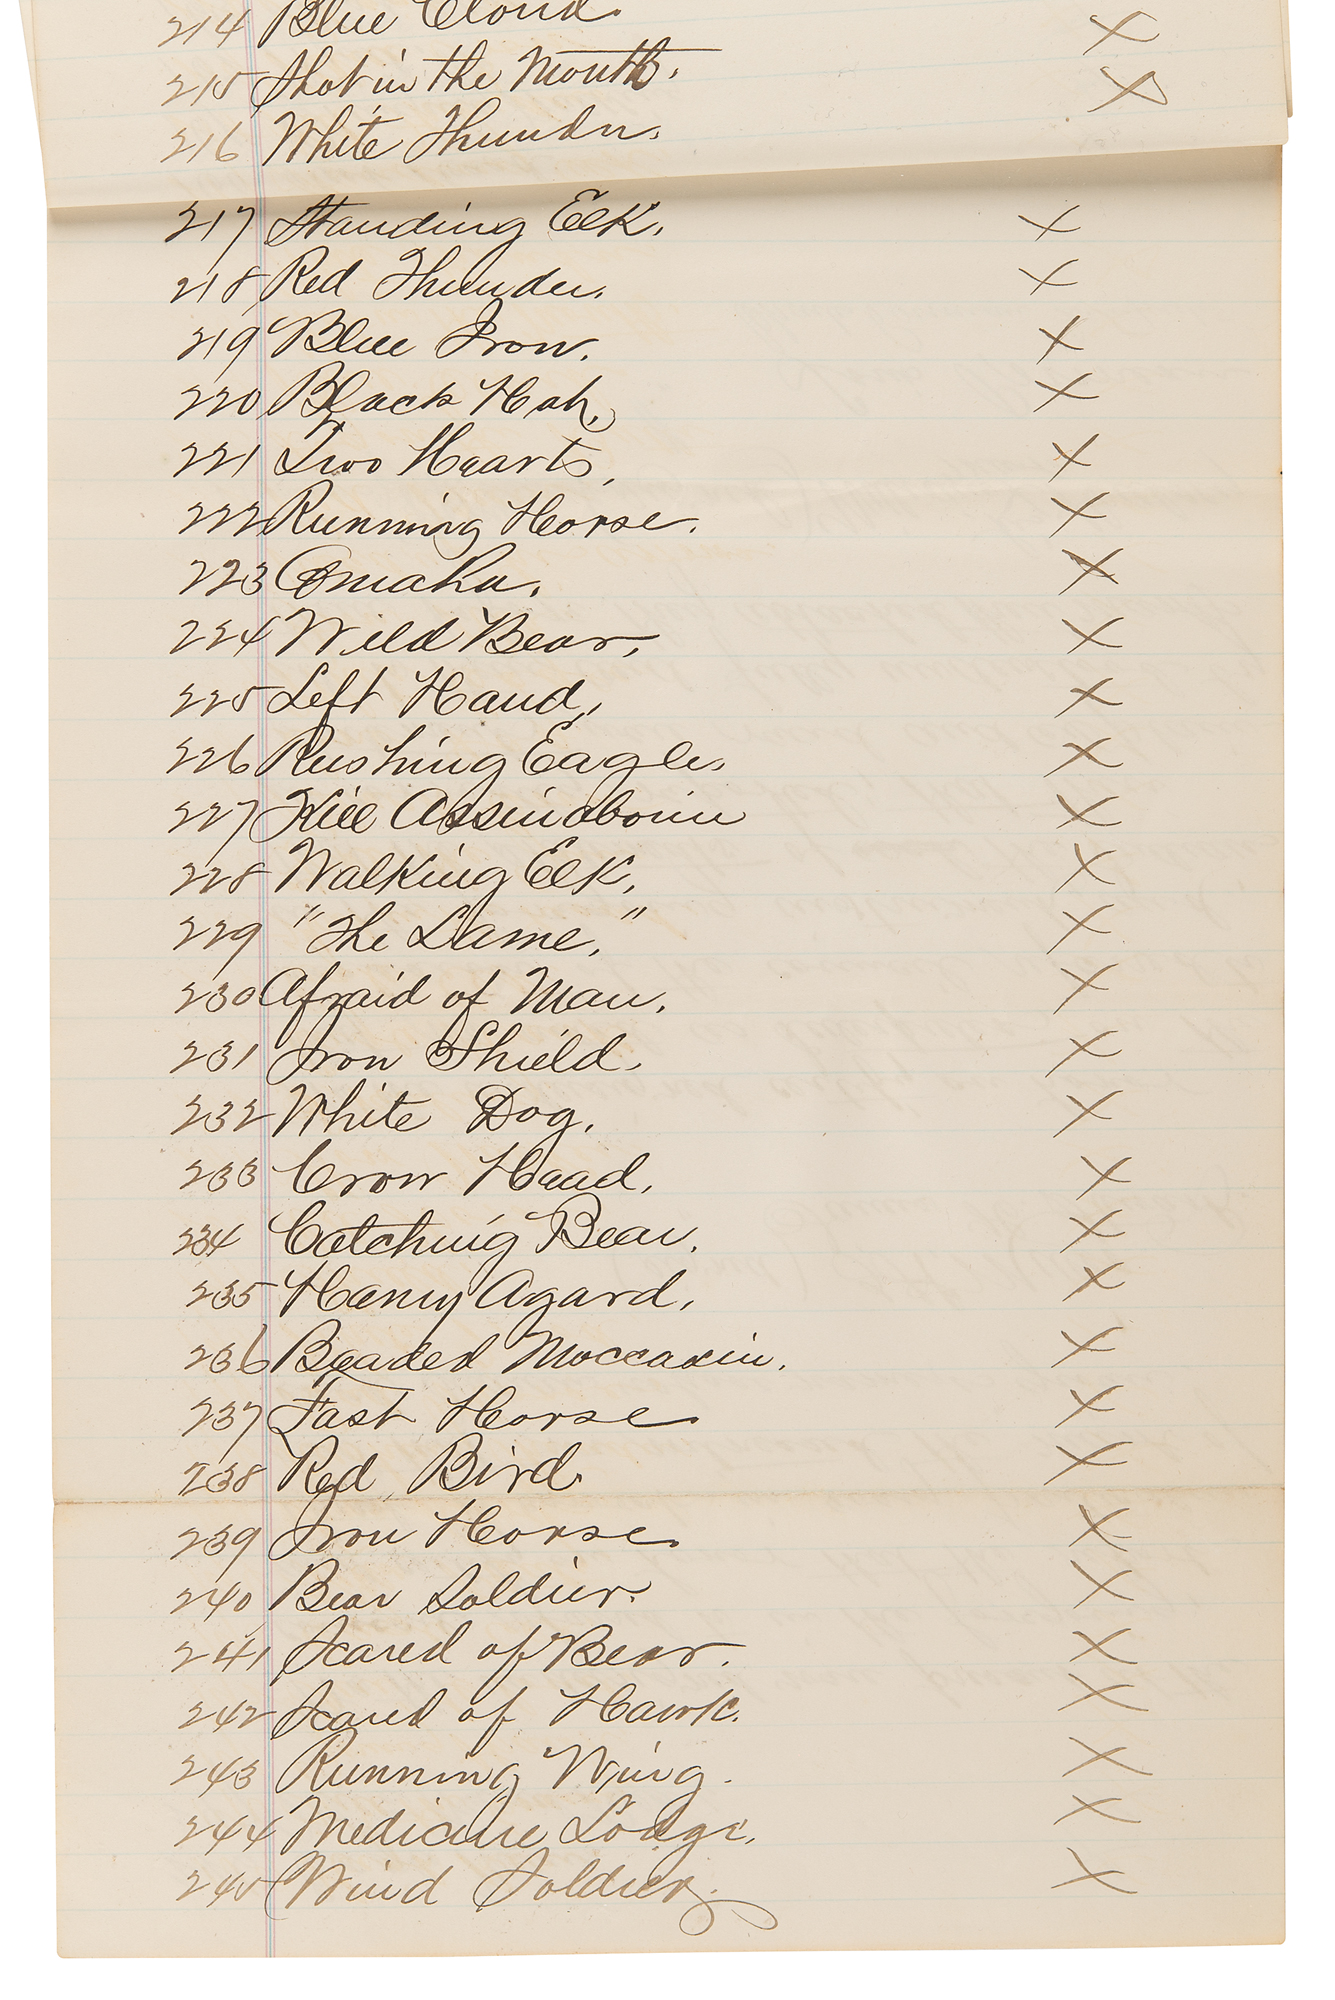 214 Blue Cloud. X
215 Shot in the Mouth. X
216 White Thunder.
217 Standing Elk. X
218 Red Thunder. X
219 Blue Iron. X
220 Black Hoh. X
221 Two Hearts, X
222 Running Horse. X
223 Omaha. X
224 Wild Bear, X
225 Left Hand, X
226 Rushing Eagle. X
227 Kill Assinaboine X
228 Walking Elk, X
229 "The Lame," X
230 Afraid of Man. X
231 Iron Shield. X
232 White Dog. X
233 Crow Head, X
234 Catching Bear. X
235 Henry Agard, X
236 Beaded Moccasin. X
237 Fast Horse. X
238 Red Bird. X
239 Iron Horse. X
240 Bear Soldier. X
241 Scared of Bear. X
242 Scared of Hawk. X
243 Running Wing. X
244 Medicine Lodge. X
245 Wind Soldier. X